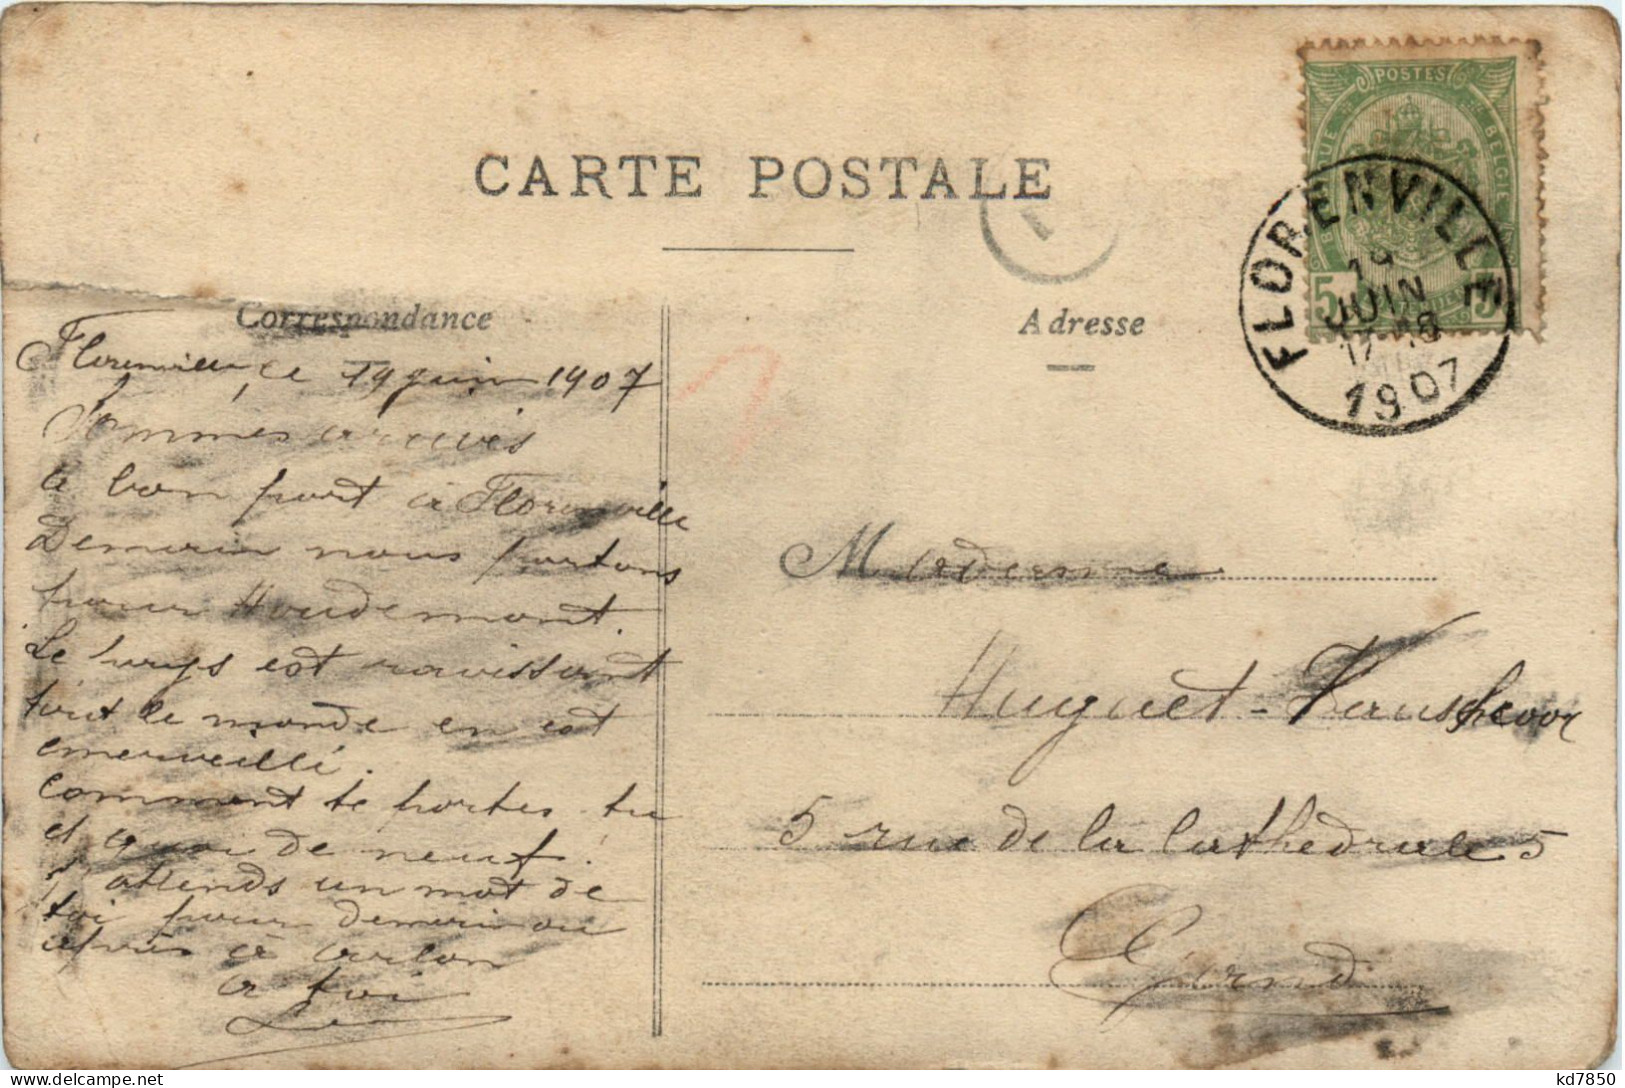 CARTE POSTALE
POSTES
BELGIQUE
BELGIE
5
5
FLORENVILLE
19
JUIN
17-18
1907
Correspondance
Adresse
Florenville, le 19 juin 1907
Sommes arrivés
à bon port à Florenville
Demain nous partons
pour Houdemont.
Le pays est ravissant
tout le monde en est
emerveillé.
Comment te portes-tu
et quoi de neuf?
J'attends un mot de
toi pour demain ou
après à Arlon
à toi
Madame
Huguet-
5 rue de la Cathédrale 5
Gand
kd7850